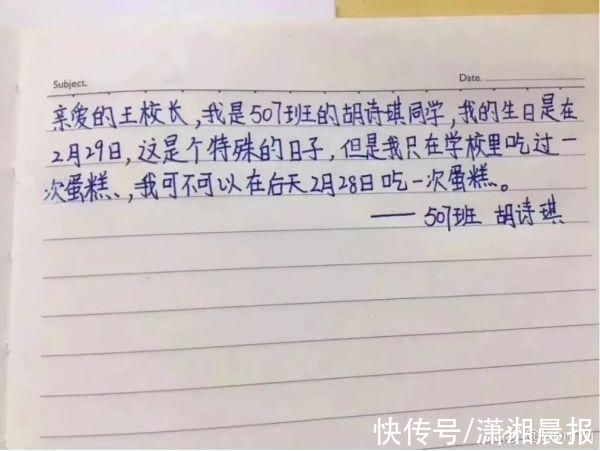 Subject.
Date.
亲爱的王校长,我是507班的胡诗琪同学,我的生日是在
2月29日,这是个特殊的日子,但是我只在学校里吃过一
次蛋糕、,我可不可以在后天2月28日吃一次蛋糕。
——507班 胡诗琪
快传号/潇湘晨报